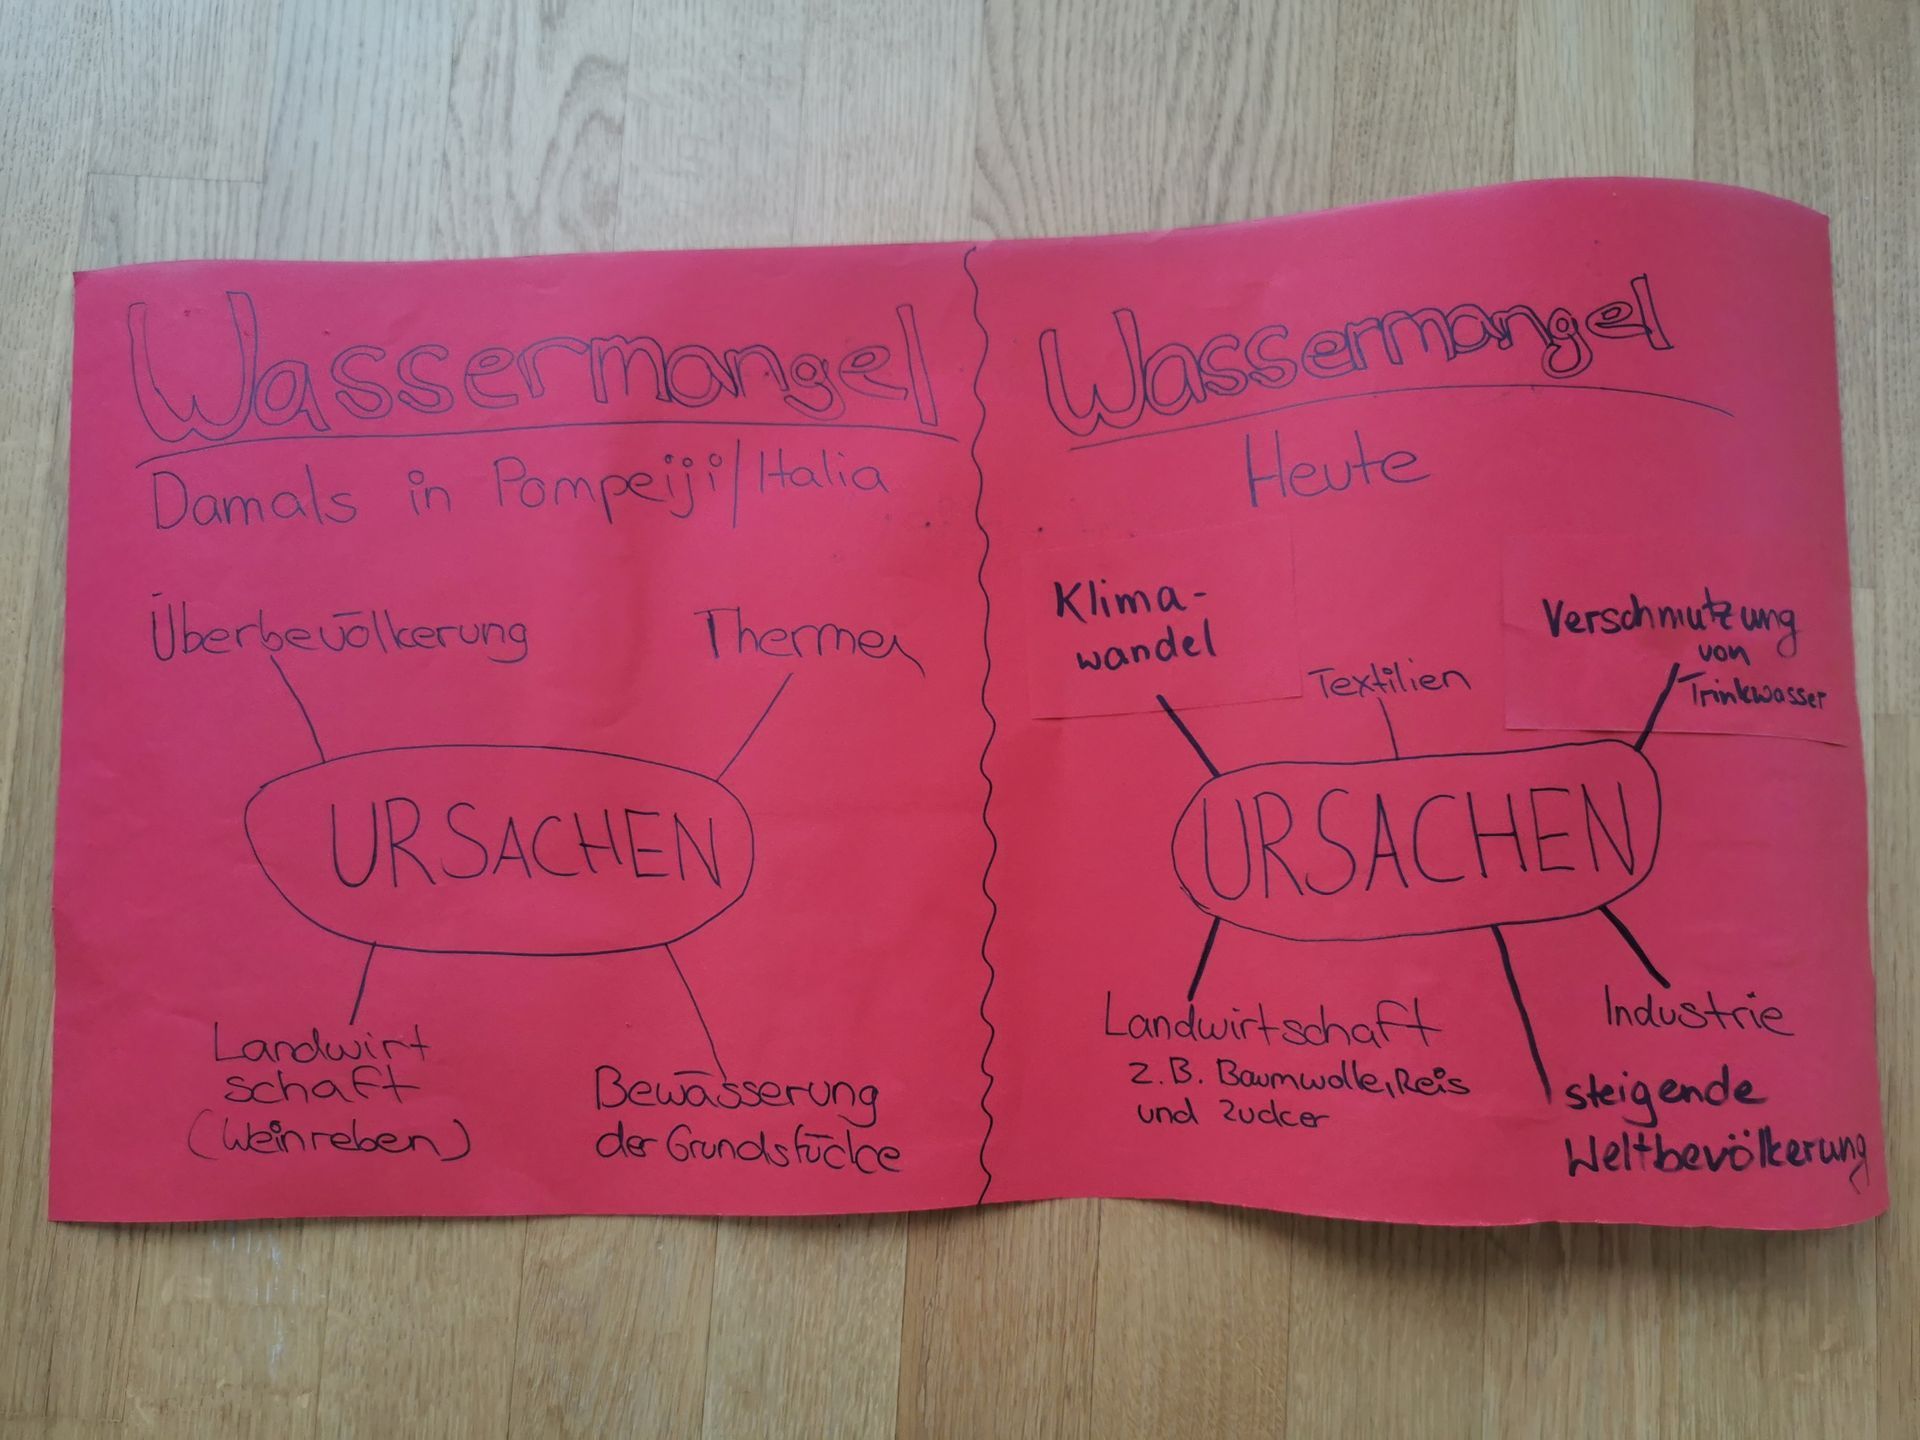 Wassermangel
Damals in Pompeiji/Italia
Überbevölkerung
Thermen
URSACHEN
Landwirt
schaft
(Weinreben)
Bewässerung
der Grundstücke
Wassermangel
Heute
Klima-
wandel
Textilien
Verschmutzung
von
Trinkwasser
URSACHEN
Landwirtschaft
z.B. Baumwolle, Reis
und Zucker
Industrie
steigende
Weltbevölkerung